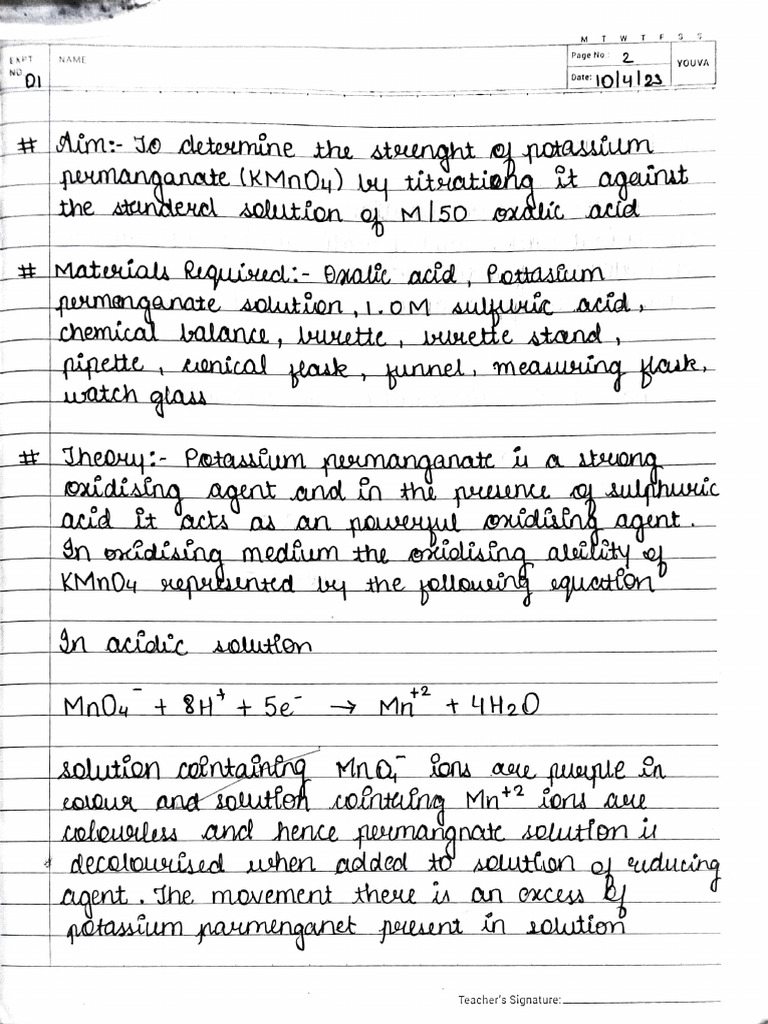 M T W T F S S
EXPT NO. 01
NAME
Page No.: 2
YOUVA
Date: 10/4/23
# Aim:- To determine the strenght of potassium
permanganate (KMnO4) by titrationg it against
the standerd solution of M/50 oxalic acid
# Materials Required:- Oxalic acid, Pottasium
permenganate solution, 1.0M sulfuric acid,
chemical balance, burette, burette stand,
pipette, conical flask, funnel, measuring flask,
watch glass
# Theory:- Potassium permanganate is a strong
oxidising agent and in the presence of sulphuric
acid it acts as an powerful oxidising agent.
In oxidising medium the oxidising ability of
KMnO4 represented by the following equation
In acidic solution
MnO4⁻ + 8H⁺ + 5e⁻ → Mn⁺² + 4H2O
solution cointaining MnO4⁻ ions are purple in
colour and solution cointaing Mn⁺² ions are
colourless and hence permangnate solution is
decolourised when added to solution of reducing
agent. The movement there is an excess of
potassium parmenganet present in solution
Teacher's Signature: